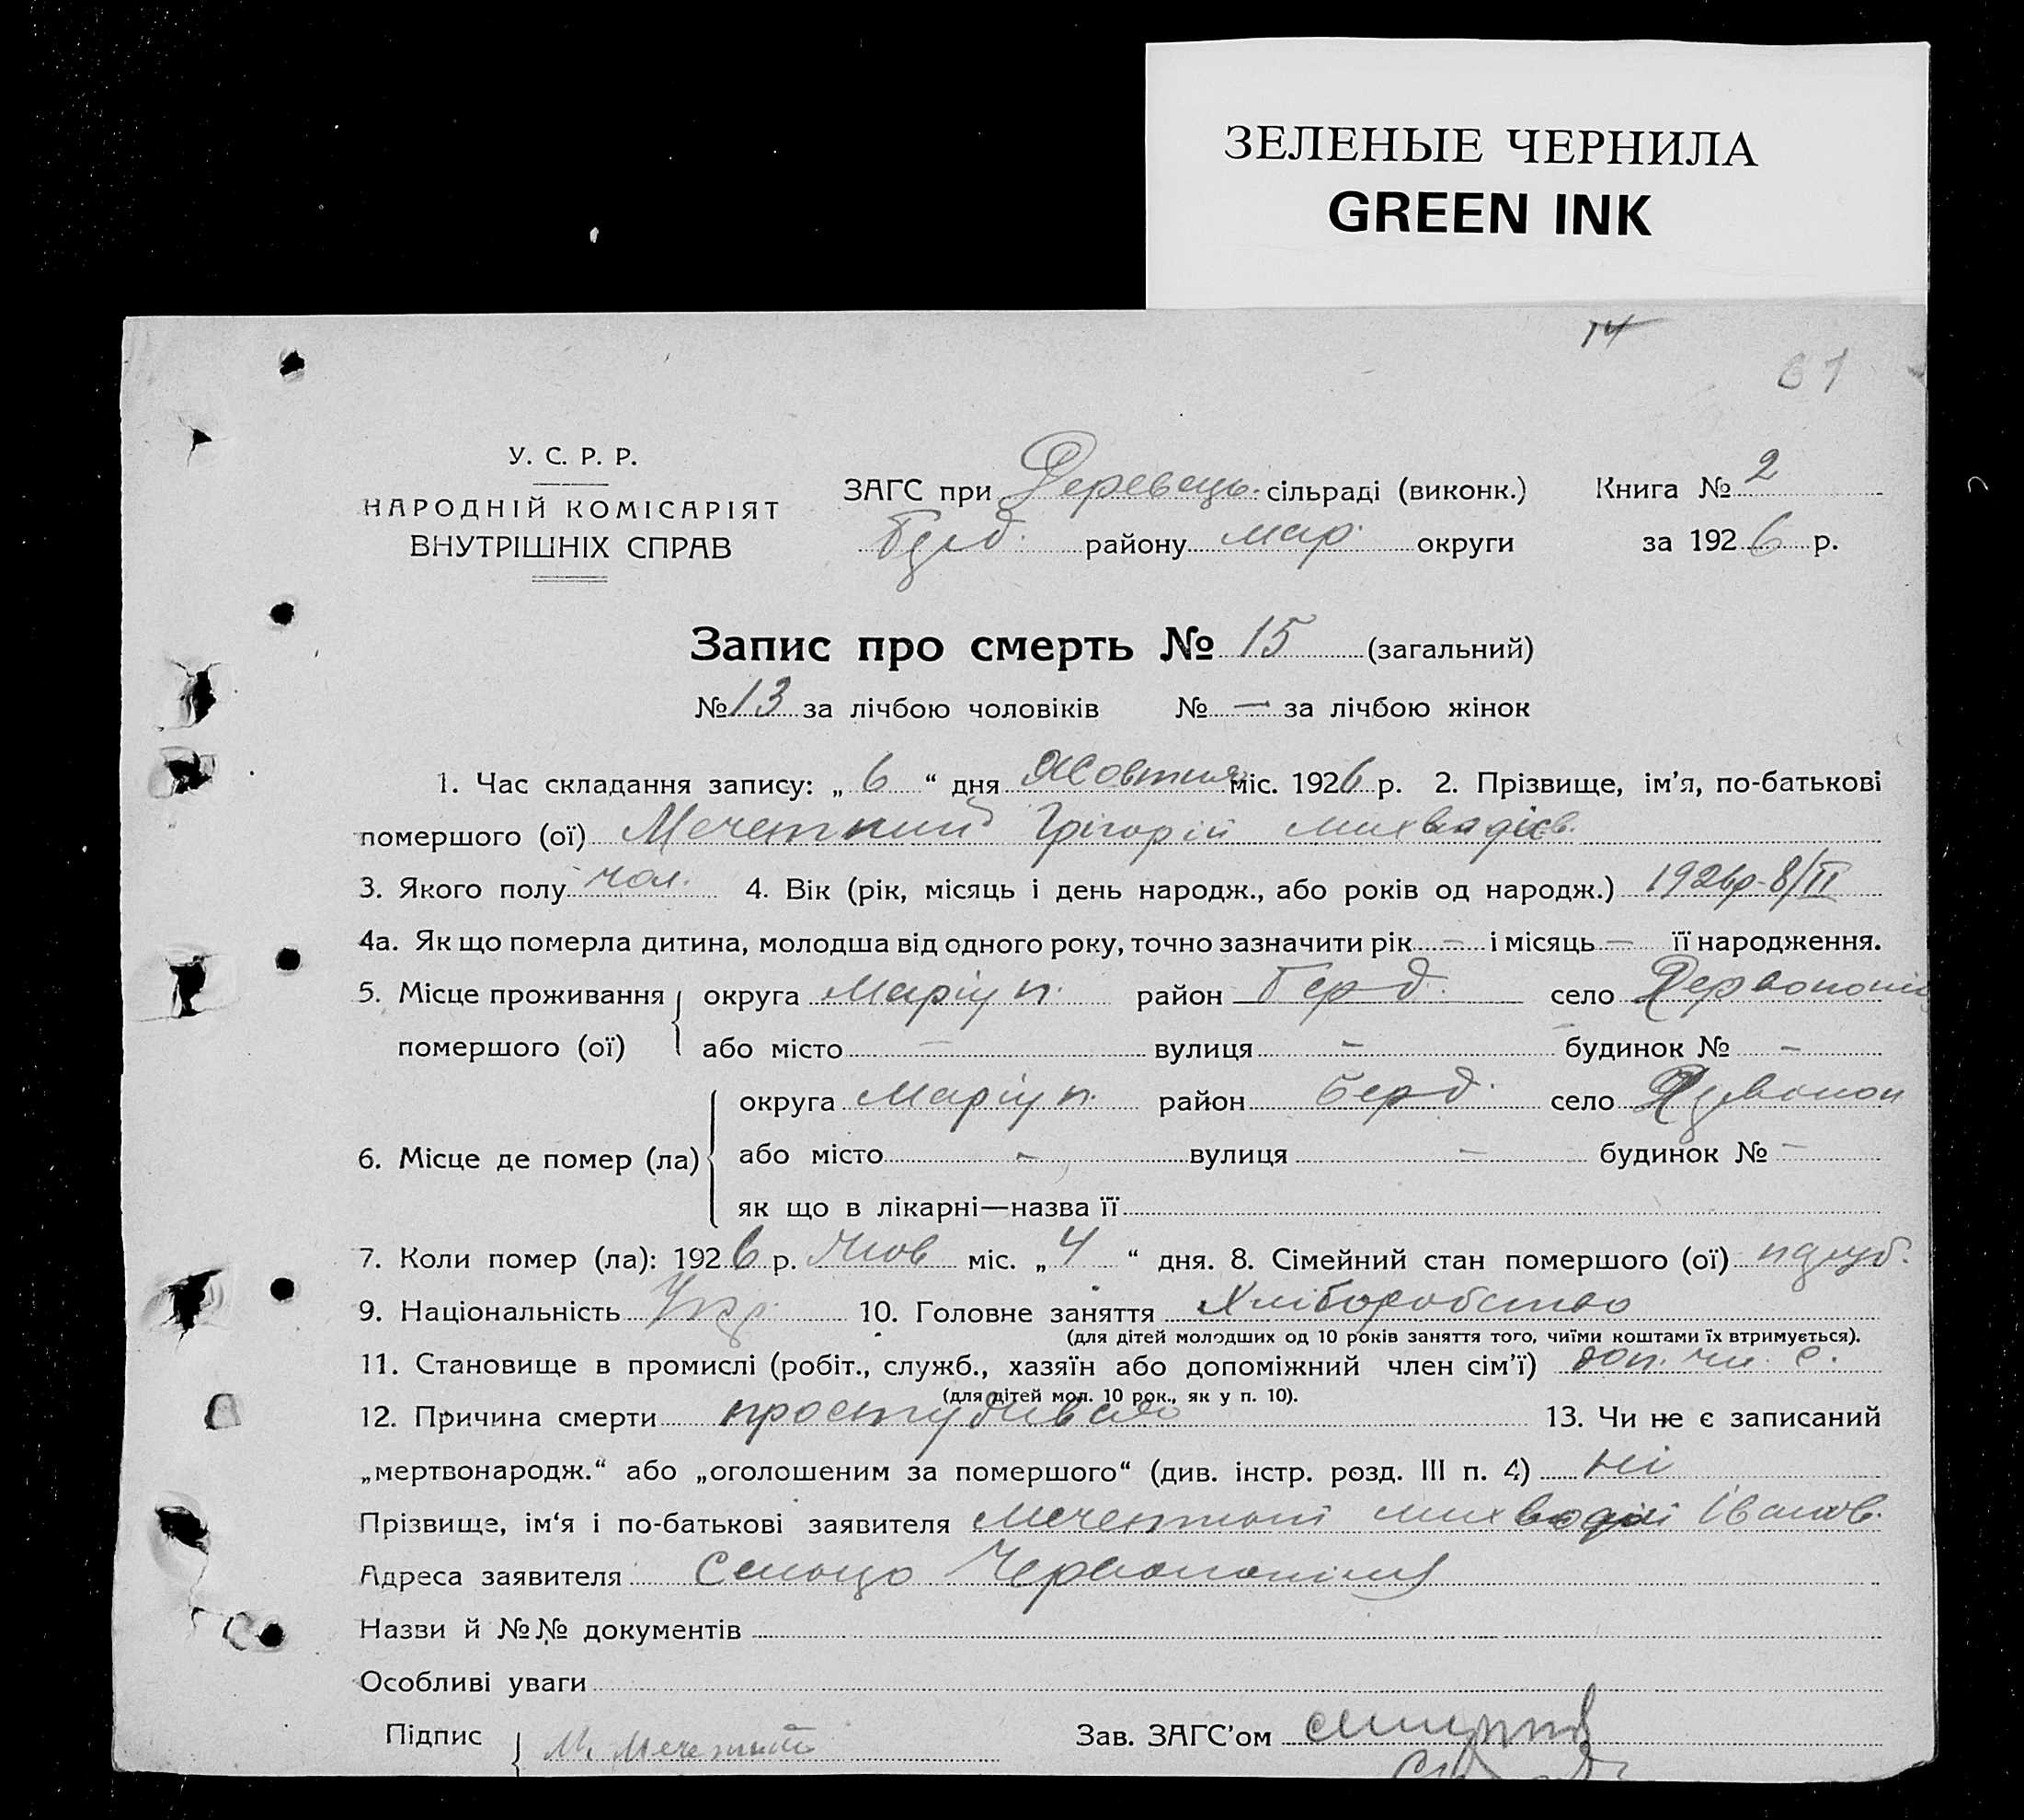 ЗЕЛЕНЫЕ ЧЕРНИЛА
GREEN INK
14
61
У. С. Р. Р.
НАРОДНІЙ КОМІСАРІЯТ
ВНУТРІШНІХ СПРАВ
ЗАГС при сільраді (виконк.) Книга № 2
району мар. округи за 1926 р.
Запис про смерть № 15 (загальний)
№ 13 за лічбою чоловіків № — за лічбою жінок
1. Час складання запису: „ 6 “ дня Жовтня міс. 1926 р. 2. Прізвище, ім’я, по-батькові
помершого (ої) Мечетний Грігорій
3. Якого полу чол. 4. Вік (рік, місяць і день народж., або років од народж.) 1926р-8/II
4а. Як що померла дитина, молодша від одного року, точно зазначити рік — і місяць — її народження.
5. Місце проживання помершого (ої) округа Маріуп. район Берд. село
або місто — вулиця - будинок № -
6. Місце де помер (ла) округа Маріуп. район Берд. село
або місто - вулиця — будинок № —
як що в лікарні—назва її
7. Коли помер (ла): 1926 р. Жов міс. „ 4 “ дня. 8. Сімейний стан помершого (ої)
9. Національність Укр. 10. Головне заняття Хліборобство
(для дітей молодших од 10 років заняття того, чиїми коштами їх втримується).
11. Становище в промислі (робіт., служб., хазяїн або допоміжний член сім’ї) доп. чл. с.
(для дітей мол. 10 рок., як у п. 10).
12. Причина смерти 13. Чи не є записаний
„мертвонародж.“ або „оголошеним за помершого“ (див. інстр. розд. III п. 4) Ні
Прізвище, ім‘я і по-батькові заявителя Мечетний Іванов.
Адреса заявителя Сельцо
Назви й №№ документів
Особливі уваги
Підпис М. Мечетний Зав. ЗАГС’ом